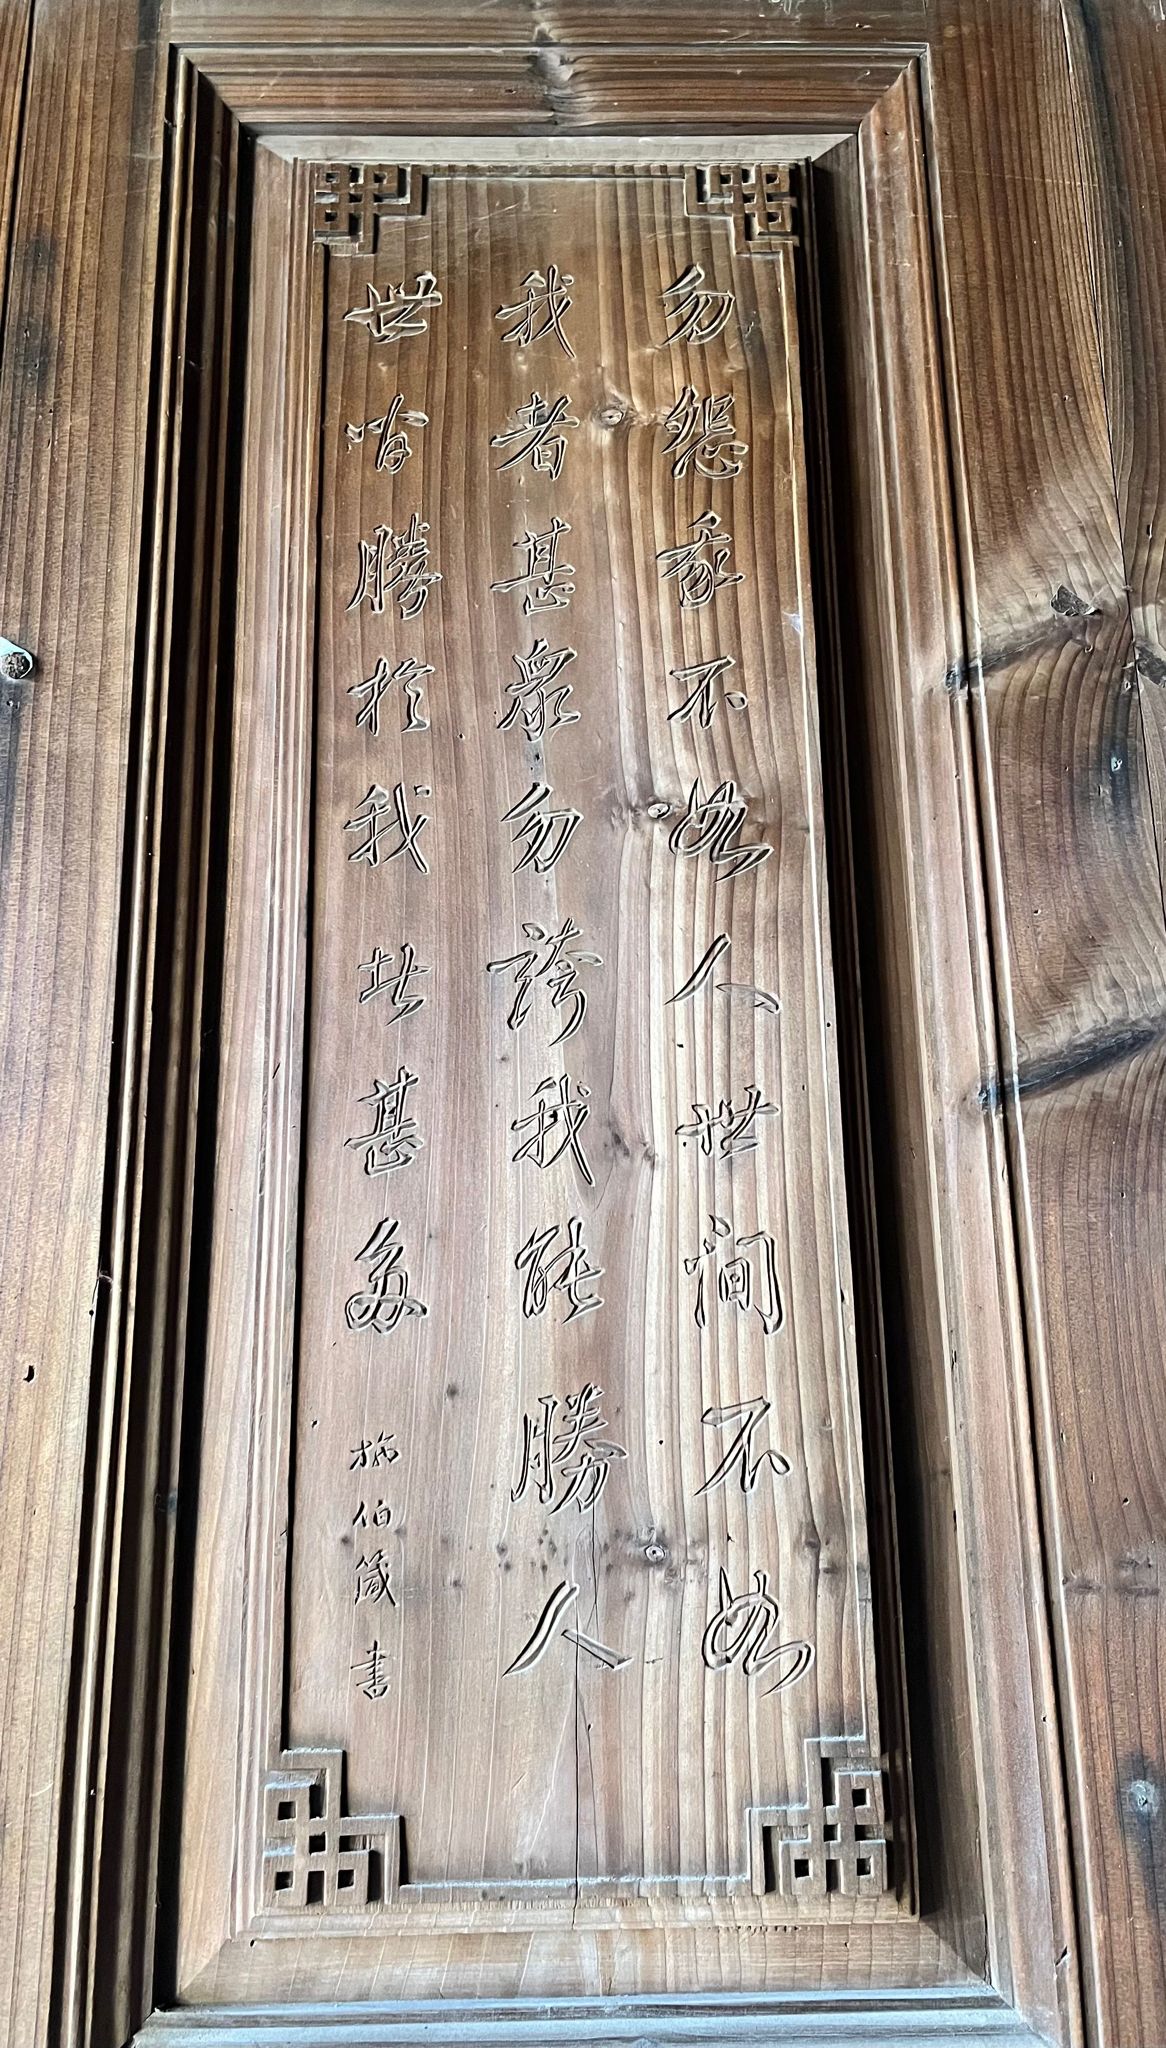 勿怨我不如人世間不如
我者甚眾勿誇我能勝人
世間勝於我者甚多
施伯箴書